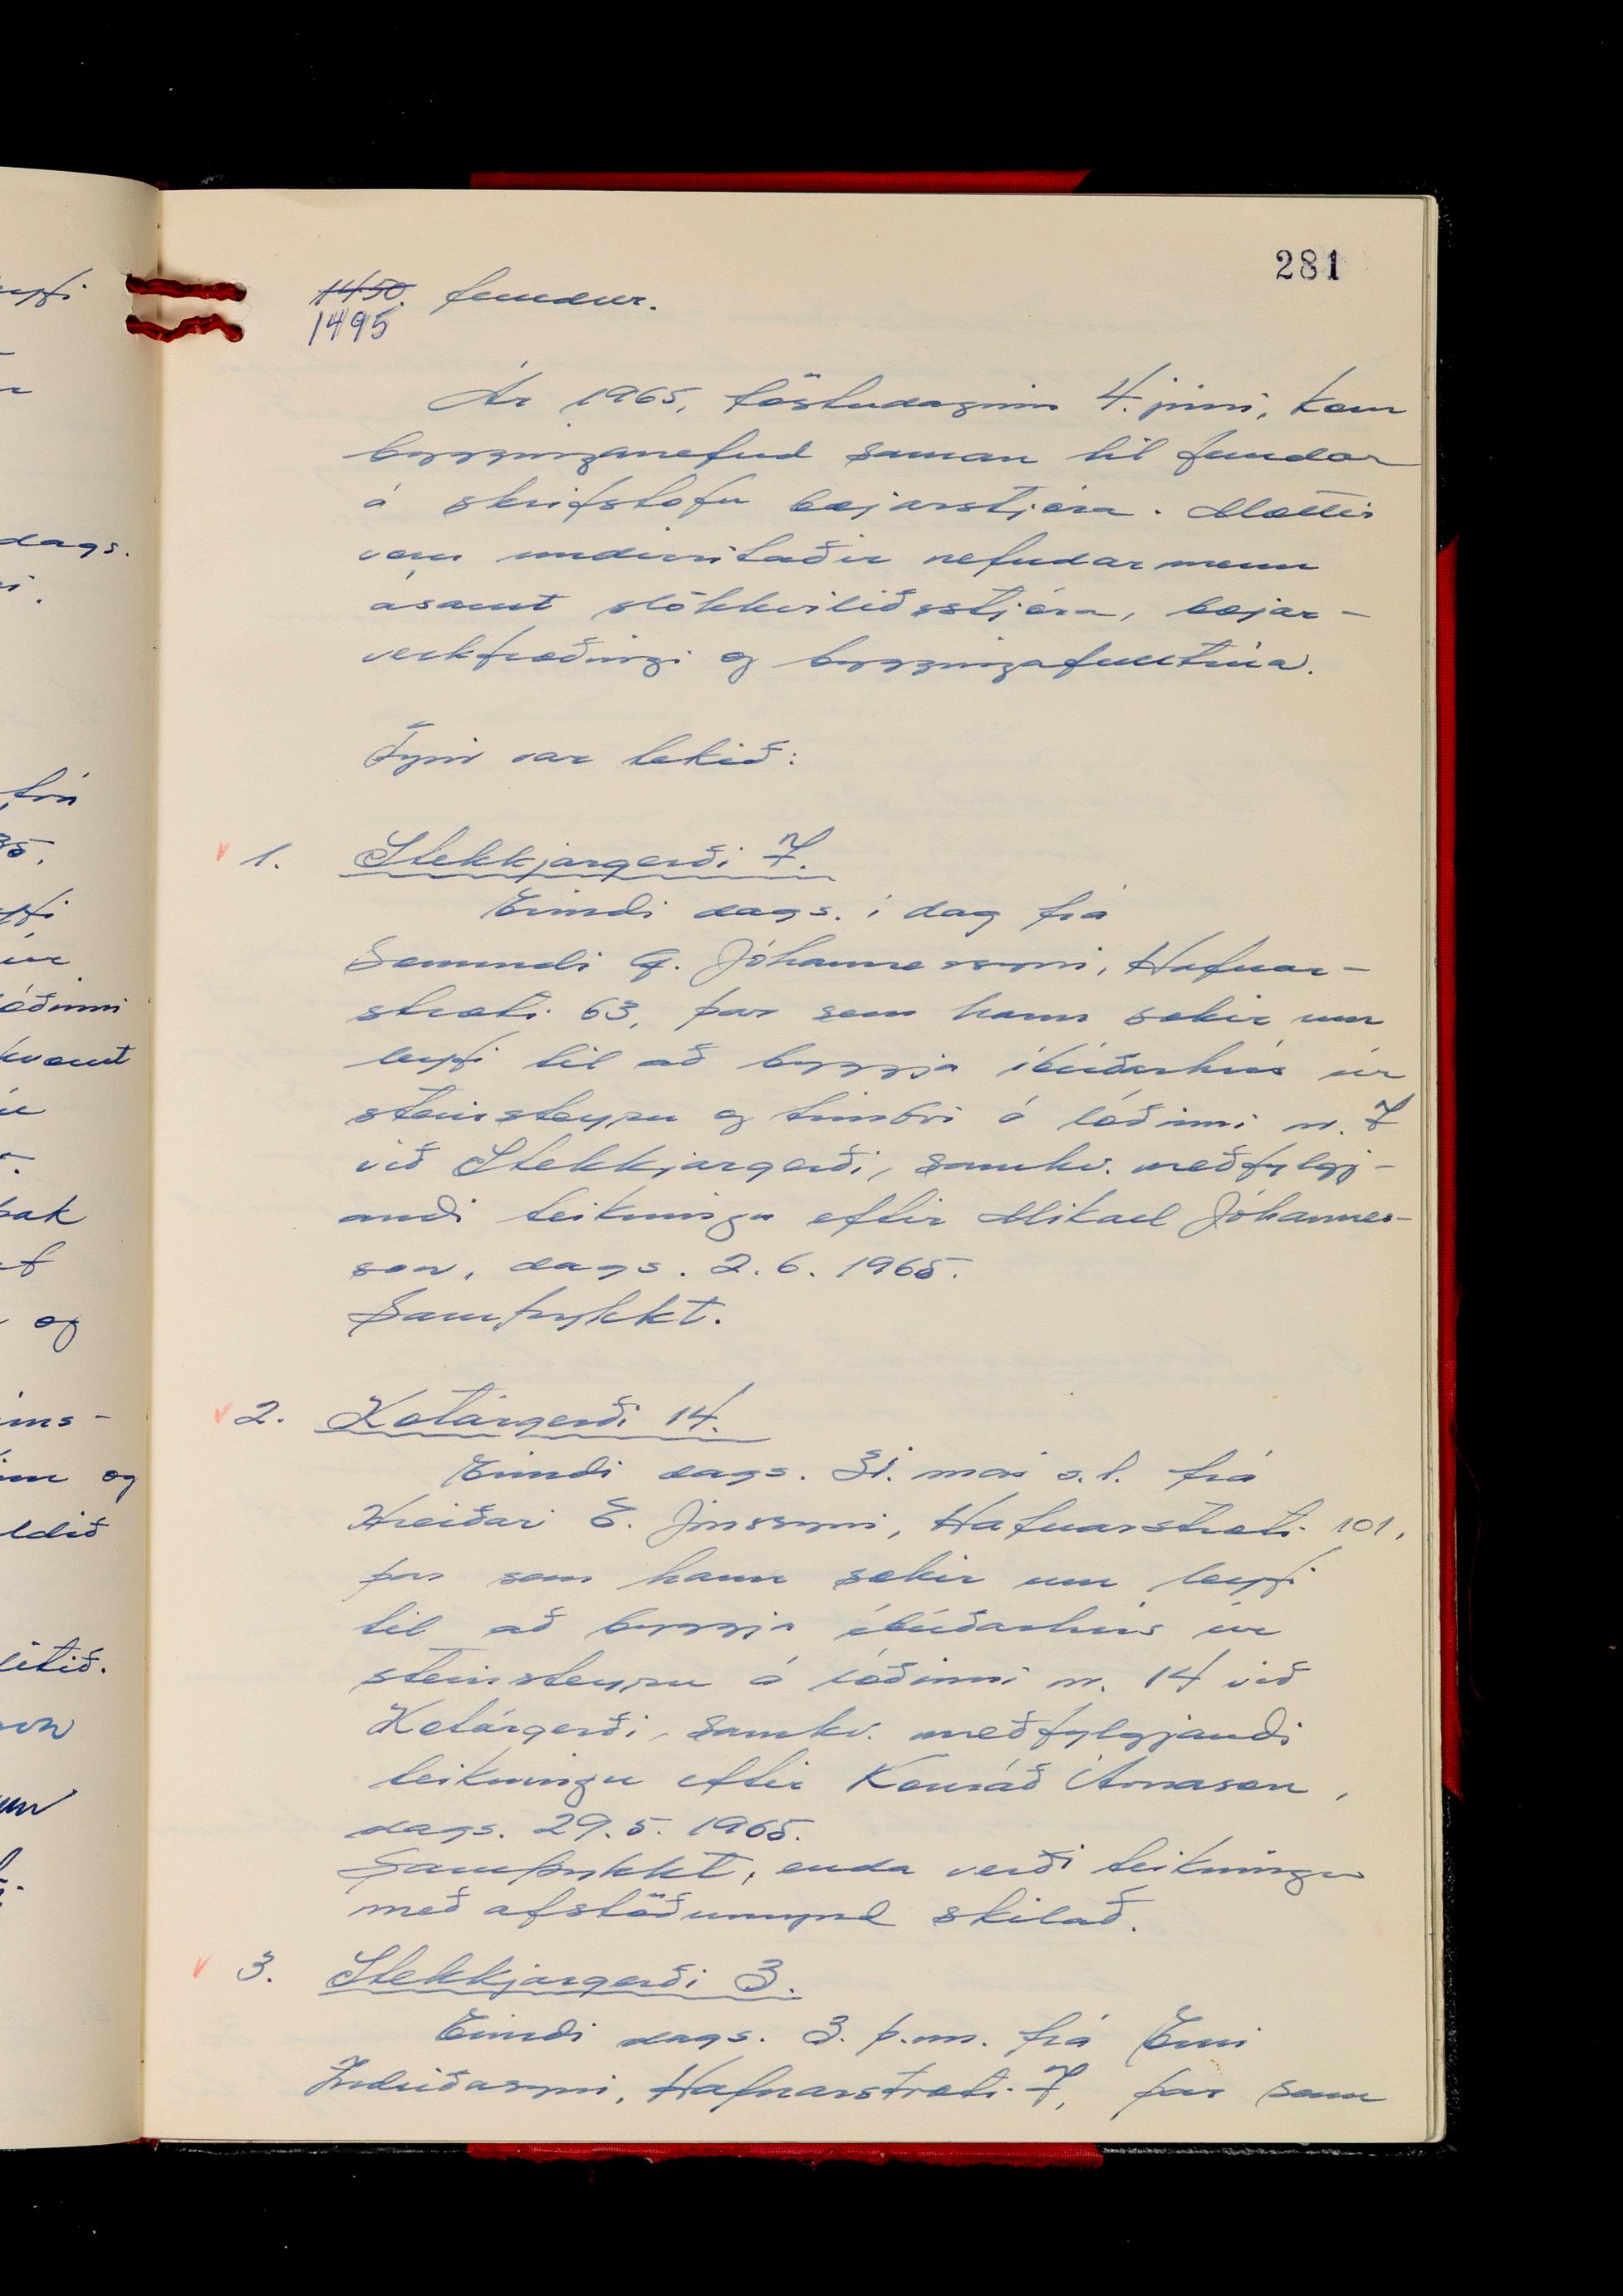 281
1450. fundur.
1495
Ár 1965, föstudaginn 4. júní, kom
bygginganefnd saman til fundar
á skrifstofu bæjarstjóra. Mættir
voru undirritaðir nefndarmenn
ásamt slökkviliðsstjóra, bæjar-
verkfræðingi og byggingafulltrúa.
Fyrir var tekið:
1. Stekkjargerði 7.
Erindi dags. í dag frá
Sæmundi G. Jóhannessyni, Hafnar-
stræti 63, þar sem hann sækir um
leyfi til að byggja íbúðarhús úr
steinsteypu og timbri á lóðinni nr. 7
við Stekkjargerði, samkv. meðfylgj-
andi teikningu eftir Mikael Jóhannes-
son, dags. 2.6. 1965.
Samþykkt.
2. Kotárgerði 14.
Erindi dags. 31. maí s.l. frá
Hreiðari E. Jónssyni, Hafnarstræti 101,
þar sem hann sækir um leyfi
til að byggja íbúðarhús úr
steinsteypu á lóðinni nr. 14 við
Kotárgerði, samkv. meðfylgjandi
teikningu eftir Konráð Árnason,
dags. 29.5. 1965.
Samþykkt, enda verði teikningu
með afstöðumynd skilað.
3. Stekkjargerði 3.
Erindi dags. 3. þ.m. frá
Indriðasyni, Hafnarstræti 7, þar sem
dags.
frá
35.
lóðinni
og
ldið